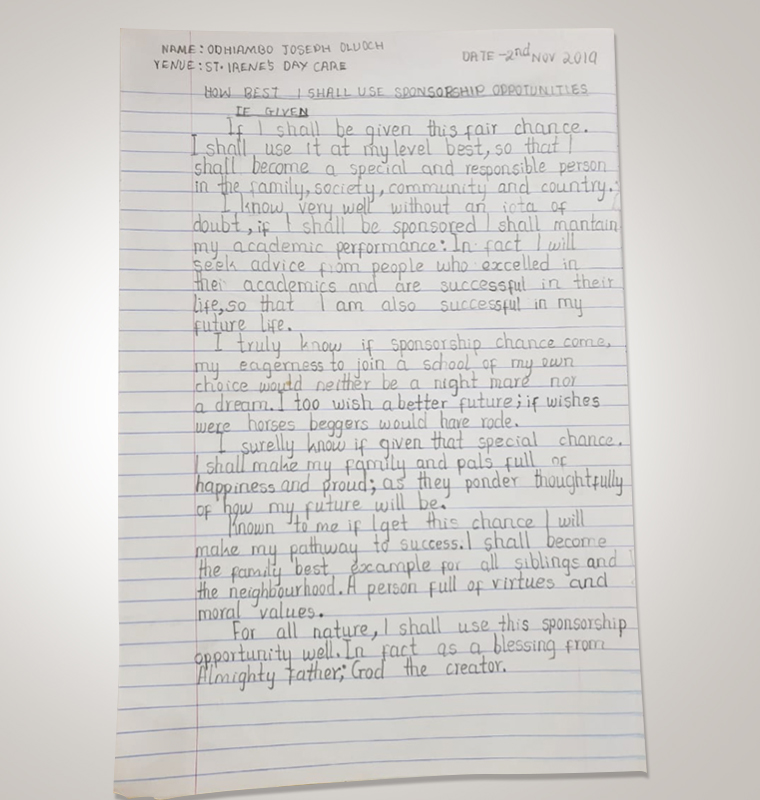 NAME: ODHIAMBO JOSEPH OLUOCH
DATE -2nd NOV 2019
VENUE: ST. IRENE'S DAY CARE
HOW BEST I SHALL USE SPONSORSHIP OPPOTUNITIES
IF GIVEN
If I shall be given this fair chance.
I shall use it at my level best, so that I
shall become a special and responsible person
in the family, society, community and country.
I know very well without an iota of
doubt, if I shall be sponsored I shall mantain
my academic performance: In fact I will
seek advice from people who excelled in
thei academics and are successful in their
life, so that I am also successful in my
future life.
I truly know if sponsorship chance come,
my eagerness to join a school of my own
choice would neither be a night mare nor
a dream. I too wish a better future; if wishes
were horses beggers would have rode.
I surelly know if given that special chance.
I shall make my family and pals full of
happiness and proud; as they ponder thoughtfully
of how my future will be.
Known to me if I get this chance I will
make my pathway to success. I shall become
the family best example for all siblings and
the neighbourhood. A person full of virtues and
moral values.
For all nature, I shall use this sponsorship
opportunity well. In fact as a blessing from
Almighty Father; God the creator.